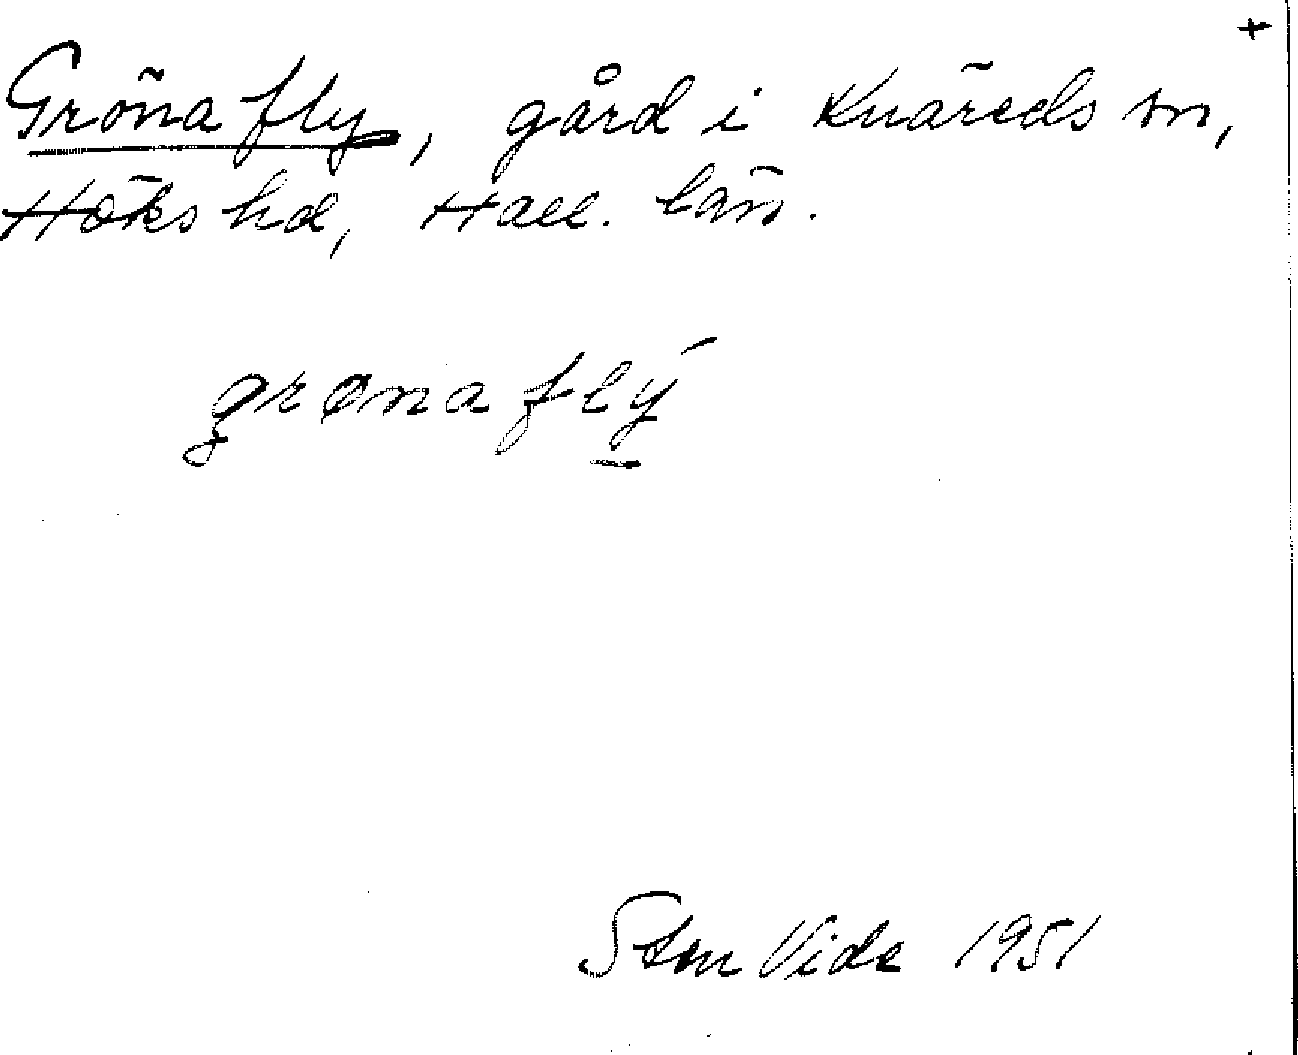 +
Gröna fly, gård i Knäreds sn,
Höks hd, Hall. län.
grøna flý
Sten Vide 1951